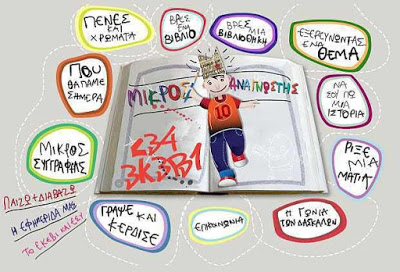 ΠΕΝΕΣ
ΚΑΙ
ΧΡΩΜΑΤΑ
ΒΡΕΣ
ΕΝΑ
ΒΙΒΛΙΟ
ΒΡΕΣ ΜΙΑ
ΒΙΒΛΙΟΘΗΚΗ
ΕΞΕΡΕΥΝΩΝΤΑΣ
ΕΝΑ
ΘΕΜΑ
ΠΟΥ
ΘΑ ΠΑΜΕ
ΣΗΜΕΡΑ
ΜΙΚΡΟΣ ΑΝΑΓΝΩΣΤΗΣ
10
ΝΑ
ΣΟΥ ΠΩ
ΜΙΑ
ΙΣΤΟΡΙΑ
ΜΙΚΡΟΣ
ΣΥΓΓΡΑΦΕΑΣ
ΡΙΞΕ
ΜΙΑ
ΜΑΤΙΑ
ΠΑΙΖΩ + ΔΙΑΒΑΖΩ
Η ΕΦΗΜΕΡΙΔΑ ΜΑΣ
ΤΟ ΕΚΕΒΙ ΚΑΙ ΕΣΥ
ΓΡΑΨΕ ΚΑΙ
ΚΕΡΔΙΣΕ
ΕΠΙΚΟΙΝΩΝΙΑ
Η ΓΩΝΙΑ
ΤΩΝ ΔΑΣΚΑΛΩΝ